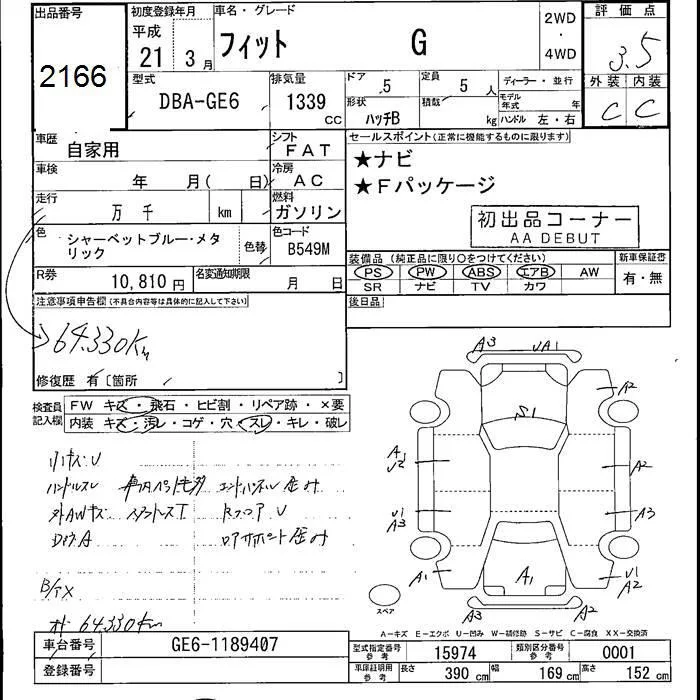 出品番号
2166
初度登録年月
平成
21 3月
車名・グレード
フィット G
2WD
・
4WD
評価点
3.5
外装 内装
C C
型式
DBA-GE6
排気量
1339
CC
ドア
5
定員
5人
形状
ハッチB
積載
kg
ディーラー・並行
モデル年式 年
ハンドル 左・右
車歴
自家用
シフト
FAT
車検
年 月( 日)
冷房
AC
走行
万 千 km
燃料
ガソリン
色
シャーベットブルー・メタ
リック
色替
色コード
B549M
R券
10,810円
名変通知期限
月 日
セールスポイント(正常に機能するものに限ります)
★ナビ
★Fパッケージ
初出品コーナー
AA DEBUT
装備品(純正品に限り○をつけてください)
PS PW ABS エアB AW
SR ナビ TV カワ
新車保証書
有・無
後日品
注意事項申告欄(不具合内容等は具体的に記入して下さい)
64.330Km
修復歴 有〔箇所 〕
検査員
記入欄
FW キズ・飛石・ヒビ割・リペア跡・×要
内装 キズ・汚レ・コゲ・穴・スレ・キレ・破レ
小キズ U
ハンドルスレ
外AWキズ
64.330Km
A3 UA1
A2
S1
A1
U2
A2
U1
A3
A3
A1
A1
U1
A2
A3 A2
スペア
A-キズ E-エクボ U-凹み W-補修跡 S-サビ C-腐食 XX-交換済
車台番号
GE6-1189407
登録番号
型式指定番号
参考
15974
類別区分番号
参考
0001
車庫証明用
参考
長さ 390cm 幅 169cm 高さ 152cm